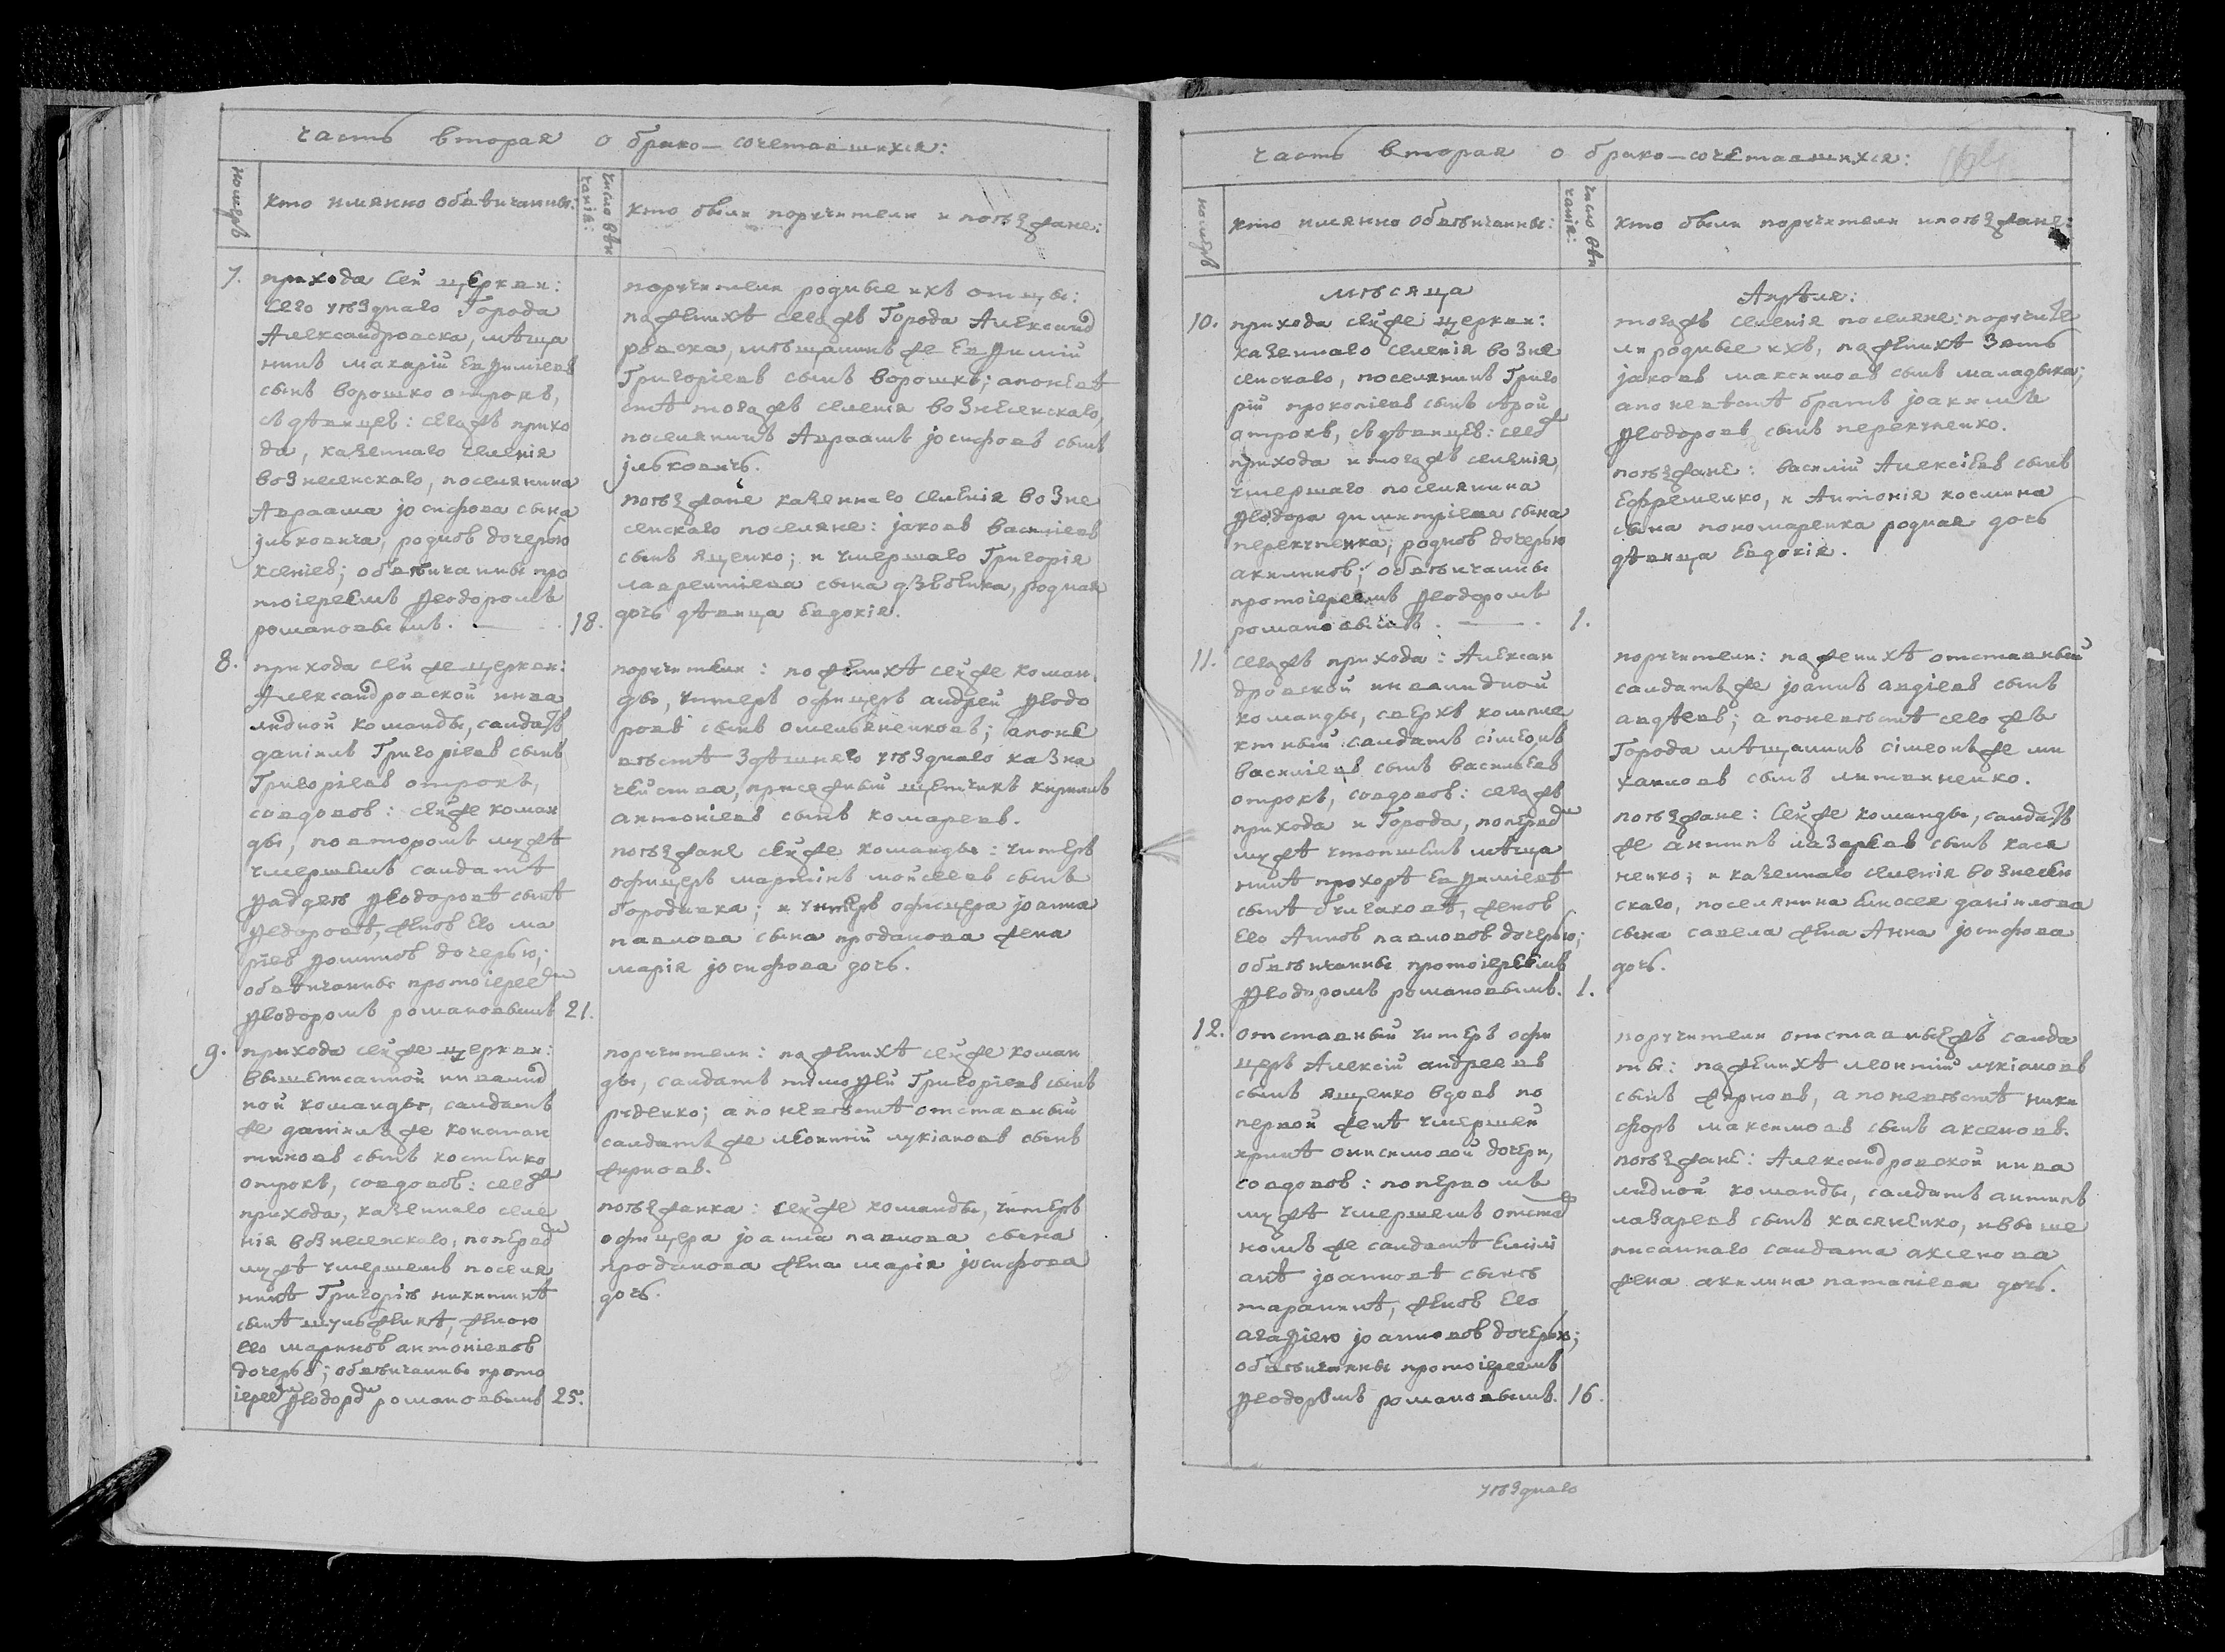 часть вторая о брако-сочетавшихся:
номеръ
кто имянно обвѣнчанны:
число вѣн
чанія:
кто были поручители и поѣзжане:
7.
прихода сей церкви:
сего уѣзднаго Города
Александровска, мѣща
нинъ макарій Евѳиміевъ
сынъ ворошко отрокъ,
съ дѣвицею: сегожъ прихо
да, казеннаго селенія
вознесенскаго, поселянина
Авраама іосифова сына
јльковича, родною дочерью
ксеніею; обвѣнчанны про
тоіереемъ Ѳеодоромъ
романовымъ. 18.
поручители родные ихъ отцы:
пожениху сегожъ Города Александ
ровска, мѣщанинъ же Евѳимій
Григоріевъ сынъ ворошко; апоневѣ
стѣ тогожъ селенія вознесенскаго,
поселянинъ Авраамъ јосифовъ сынъ
јльковичъ.
поѣзжане казеннаго селенія возне
сенскаго поселяне: јаковъ василіевъ
сынъ ященко; и умершаго Григорія
лаврентіева сына дзюбика, родная
дочь дѣвица Евдокія.
8.
прихода сей же церкви:
Александровской инва
лидной команды, салдатъ
даніилъ Григоріевъ сынъ
Григоріевъ отрокъ,
совдовою: сей же коман
ды, повторомъ мужѣ
умершемъ салдатѣ
Ѳаддеѣ Ѳеодоровѣ сынѣ
Ѳедоровѣ, женою Его ма
ріею Ѳоминою дочерью;
обвѣнчанны протоіереем
Ѳеодоромъ романовымъ 21.
поручители: пожениху сей же коман
ды, унтеръ офицеръ андрей Ѳеодо
ровъ сынъ омельяненковъ; апоне
вѣстѣ здѣшняго уѣзднаго казна
чейства, присяжный щетчикъ кирилъ
антоніевъ сынъ комаревъ.
поѣзжане сей же команды: унтеръ
офицеръ мартинъ мойсеевъ сынъ
бородавка; и унтеръ офицера јоанна
павлова сына проданова жена
марія јосифова дочь.
9.
прихода сей же церкви:
вышеписанной инвалид
ной команды, салдатъ
же даніилъ же констан
тиновъ сынъ костенко
отрокъ, совдовою: сегож
прихода, казеннаго селе
нія вознесенскаго, поперво
мужѣ умершемъ поселя
нинѣ Григоріѣ никитинѣ
сынѣ
женою
его мариною антоніевою
дочерью; обвѣнчанны прото
іереем Ѳеодором романовымъ 25.
поручители: пожениху сей же коман
ды, салдатъ тимоѳей Григоріевъ сынъ
руденко; апоневѣстѣ отставный
салдатъ же леонтій лукіановъ сынъ
жирновъ.
поѣзжанка: сей же команды, унтеръ
офицера јоанна павлова сына
проданова жена марія јосифова
дочь.
часть вторая о брако-сочетавшихся:
номеръ
кто имянно обвѣнчанны:
число вѣн
чанія:
кто были поручители и поѣзжане:
мѣсяца Апрѣля:
10.
прихода сей же церкви:
казеннаго селенія возне
сенскаго, поселянинъ Григо
рій прокопіевъ сынъ
отрокъ, съ дѣвицею: сегож
прихода и тогожъ селенія,
умершаго поселянина
Ѳеодора димитріева сына
перекупенка, родною дочерью
акилиною; обвѣнчанны
протоіереемъ Ѳеодоромъ
романовымъ. 1.
тогожъ селенія поселяне: поручите
ли родные ихъ, пожениху Зять
јаковъ максимовъ сынъ маладыка;
апоневѣстѣ братъ јоакимъ
Ѳеодоровъ сынъ перекупенко.
поѣзжане: василій Алексіевъ сынъ
Ефременко, и Антонія космина
сына пономаренка родная дочь
дѣвица Евдокія.
11.
сегожъ прихода: Алексан
дровской инвалидной
команды, сверхъ компле
ктный салдатъ сімеонъ
василіевъ сынъ васильевъ
отрокъ, совдовою: сегожъ
прихода и Города, поперво
мужѣ утопшемъ мѣща
нинѣ прохорѣ Евѳиміевѣ
сынѣ
женою
его Анною павловою дочерью;
обвѣнчанны протоіереемъ
Ѳеодоромъ романовымъ. 1.
поручители: пожениху отставный
салдатъ же јоаннъ авдіевъ сынъ
авдѣевъ; апоневѣстѣ сегожъ
Города мѣщанинъ сімеонъ же ми
хаиловъ сынъ литвиненко.
поѣзжане: сей же команды, салдатъ
же антипъ лазаревъ сынъ кася
ненко; и казеннаго селенія вознесен
скаго, поселянина Елисея даніилова
сына савела жена Анна јосифова
дочь.
12.
отставный унтеръ офи
церъ Алексій андреевъ
сынъ ященко вдовъ по
первой женѣ умершей
иринѣ онисимовой дочери,
совдовою: попервомъ
мужѣ умершемъ отстав
номъ же салдатѣ Еміли
анѣ јоанновѣ сынѣ
таранинѣ, женою Его
агаѳіею јоанновою дочерью;
обвѣнчанны протоіереемъ
Ѳеодоромъ романовымъ. 16.
поручители отставныежъ салда
ты: пожениху леонтій лукіановъ
сынъ жирновъ, апоневѣстѣ ники
форъ максимовъ сынъ аксеновъ.
поѣзжане: Александровской инва
лидной команды, салдатъ антипъ
лазаревъ сынъ касяненко, ивыше
писаннаго салдата аксенова
жена акилина патапіева дочь.
уѣзднаго